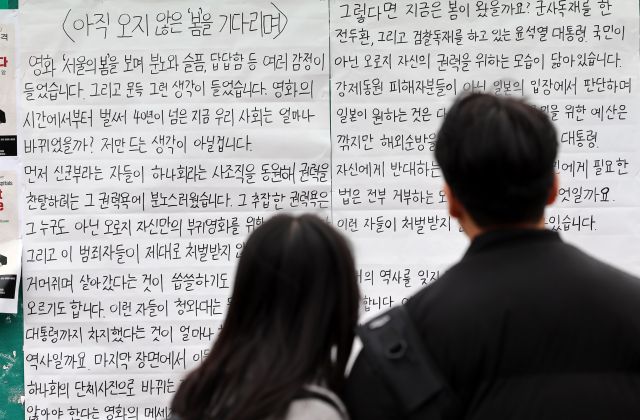 〈아직 오지 않은 '봄'을 기다리며〉
영화 '서울의 봄'을 보며 분노와 슬픔, 답답함 등 여러 감정이
들었습니다. 그리고 문득 그런 생각이 들었습니다. 영화의
시간에서부터 벌써 40년이 넘은 지금 우리 사회는 얼마나
바뀌었을까? 저만 드는 생각이 아닐겁니다.
먼저 신군부라는 자들이 하나회라는 사조직을 동원해 권력을
찬탈하려는 그 권력욕에 분노스러웠습니다. 그 추잡한 권력욕은
그 누구도 아닌 오로지 자신만의 부귀영화를 위한
그리고 이 범죄자들이 제대로 처벌받지
거머쥐며 살아갔다는 것이 씁쓸하기도
오르기도 합니다. 이런 자들이 청와대는
대통령까지 차지했다는 것이 얼마나
역사일까요. 마지막 장면에서
하나회의 단체사진으로 바뀌는
않아야 한다는 영화의
그렇다면 지금은 봄이 왔을까요? 군사독재를 한
전두환, 그리고 검찰독재를 하고 있는 윤석열 대통령. 국민이
아닌 오로지 자신의 권력을 위하는 모습이 닮아있습니다.
강제동원 피해자분들이 아닌 일본의 입장에서 판단하며
일본이 원하는 것은 위한 예산은
깎지만 해외순방을 대통령.
자신에게 반대하는 에게 필요한
법은 전부 거부하는 엇일까요.
이런 자들이 처벌받지 있습니다.
의 역사를 잊지